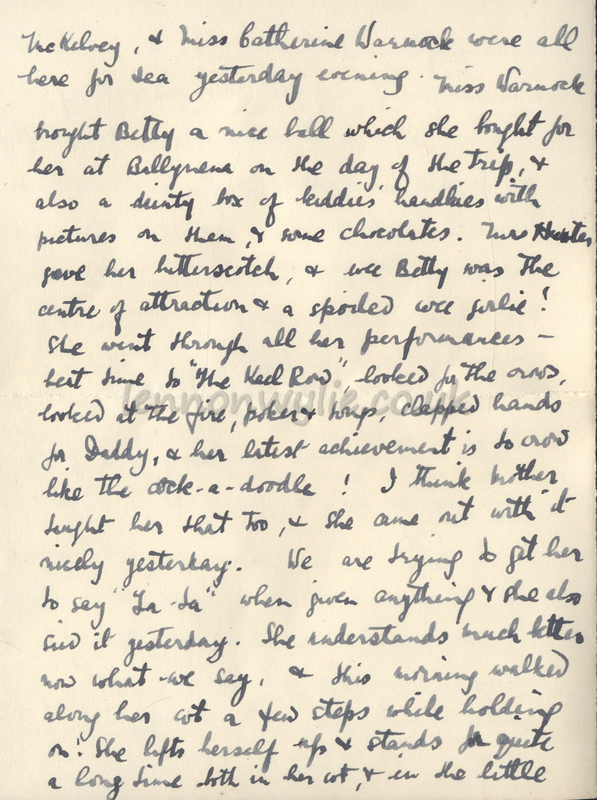 McKelvey, & Miss Catherine Warnock were all
here for tea yesterday evening. Miss Warnock
brought Betty a nice ball which she bought for
her at Ballymena on the day of the trip, &
also a dainty box of kiddies' handkies with
pictures on them, & some chocolates. Mrs Hunter
gave her butterscotch, & wee Betty was the
centre of attraction & a spoiled wee girlie!
She went through all her performances –
beat time to "The Keel Row", looked for the crows,
looked at the fire, poker & tongs, clapped hands
for Daddy, & her latest achievement is to crow
like the cock-a-doodle! I think Mother
taught her that too, & she came out with it
nicely yesterday. We are trying to get her
to say "Ta-ta" when given anything & she also
said it yesterday. She understands much better
now what we say, & this morning walked
along her cot a few steps while holding
on! She lifts herself up & stands for quite
a long time both in her cot, & in the little
lennonwylie.co.uk